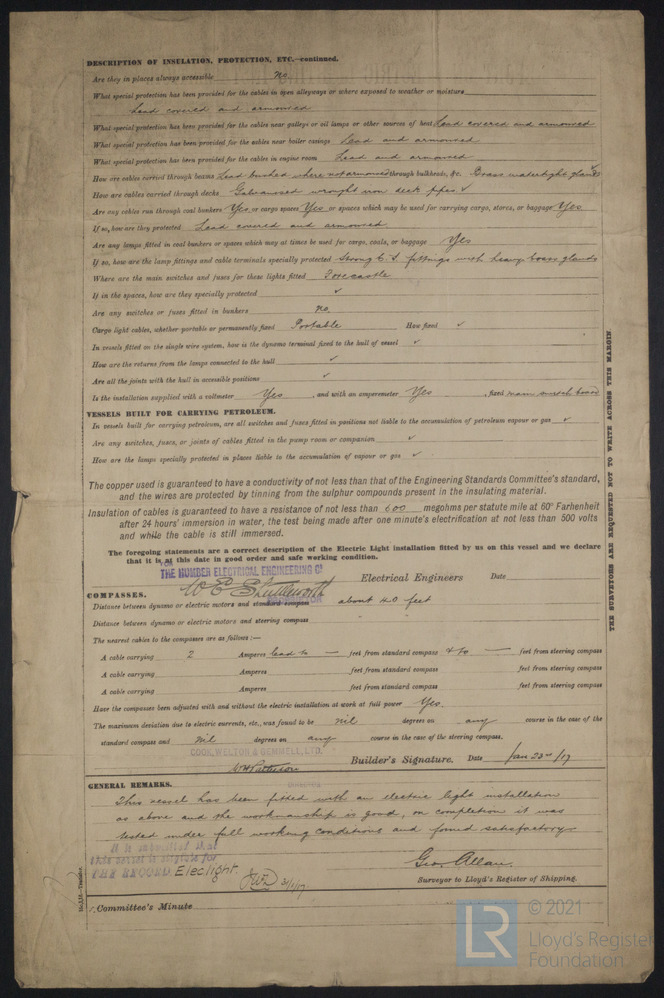 DESCRIPTION OF INSULATION, PROTECTION, ETC.—continued.
Are they in places always accessible no
What special protection has been provided for the cables in open alleyways or where exposed to weather or moisture
Lead covered and armoured
What special protection has been provided for the cables near galleys or oil lamps or other sources of heat Lead covered and armoured
What special protection has been provided for the cables near boiler casings Lead and armoured
What special protection has been provided for the cables in engine room Lead and armoured
How are cables carried through beams Lead bushed where not armoured through bulkheads, &c. Brass watertight glands
How are cables carried through decks Galvanised wrought iron deck pipes ✓
Are any cables run through coal bunkers Yes or cargo spaces Yes or spaces which may be used for carrying cargo, stores, or baggage Yes
If so, how are they protected Lead covered and armoured
Are any lamps fitted in coal bunkers or spaces which may at times be used for cargo, coals, or baggage Yes
If so, how are the lamp fittings and cable terminals specially protected Strong C.I. fittings with heavy brass glands
Where are the main switches and fuses for these lights fitted Forecastle
If in the spaces, how are they specially protected ✓
Are any switches or fuses fitted in bunkers no
Cargo light cables, whether portable or permanently fixed Portable How fixed ✓
In vessels fitted on the single wire system, how is the dynamo terminal fixed to the hull of vessel ✓
How are the returns from the lamps connected to the hull ✓
Are all the joints with the hull in accessible positions ✓
Is the installation supplied with a voltmeter Yes, and with an amperemeter Yes, fixed main switch board
VESSELS BUILT FOR CARRYING PETROLEUM.
In vessels built for carrying petroleum, are all switches and fuses fitted in positions not liable to the accumulation of petroleum vapour or gas ✓
Are any switches, fuses, or joints of cables fitted in the pump room or companion ✓
How are the lamps specially protected in places liable to the accumulation of vapour or gas ✓
The copper used is guaranteed to have a conductivity of not less than that of the Engineering Standards Committee's standard,
and the wires are protected by tinning from the sulphur compounds present in the insulating material.
Insulation of cables is guaranteed to have a resistance of not less than 600 megohms per statute mile at 60° Farhenheit
after 24 hours' immersion in water, the test being made after one minute's electrification at not less than 500 volts
and while the cable is still immersed.
The foregoing statements are a correct description of the Electric Light installation fitted by us on this vessel and we declare
that it is at this date in good order and safe working condition.
THE HUMBER ELECTRICAL ENGINEERING Co
W E Shuttleworth Electrical Engineers Date
COMPASSES.
Distance between dynamo or electric motors and standard compass about 40 feet
Distance between dynamo or electric motors and steering compass
The nearest cables to the compasses are as follows:—
A cable carrying 2 Amperes lead to — feet from standard compass — feet from steering compass
A cable carrying Amperes feet from standard compass feet from steering compass
A cable carrying Amperes feet from standard compass feet from steering compass
Have the compasses been adjusted with and without the electric installation at work at full power Yes.
The maximum deviation due to electric currents, etc., was found to be nil degrees on any course in the case of the
standard compass and nil degrees on any course in the case of the steering compass.
COOK, WELTON & GEMMELL, LTD.
Builder's Signature. Date Jan 23rd /17
GENERAL REMARKS.
This vessel has been fitted with an electric light installation
as above and the workmanship is good, on completion it was
tested under full working conditions and found satisfactory.
It is submitted that
this vessel is eligible for
THE RECORD. Elec light.
31/1/17
Geo. Allan.
Surveyor to Lloyd's Register of Shipping.
Committee's Minute
THE SURVEYORS ARE REQUESTED NOT TO WRITE ACROSS THIS MARGIN
LR
© 2021
Lloyd's Register
Foundation